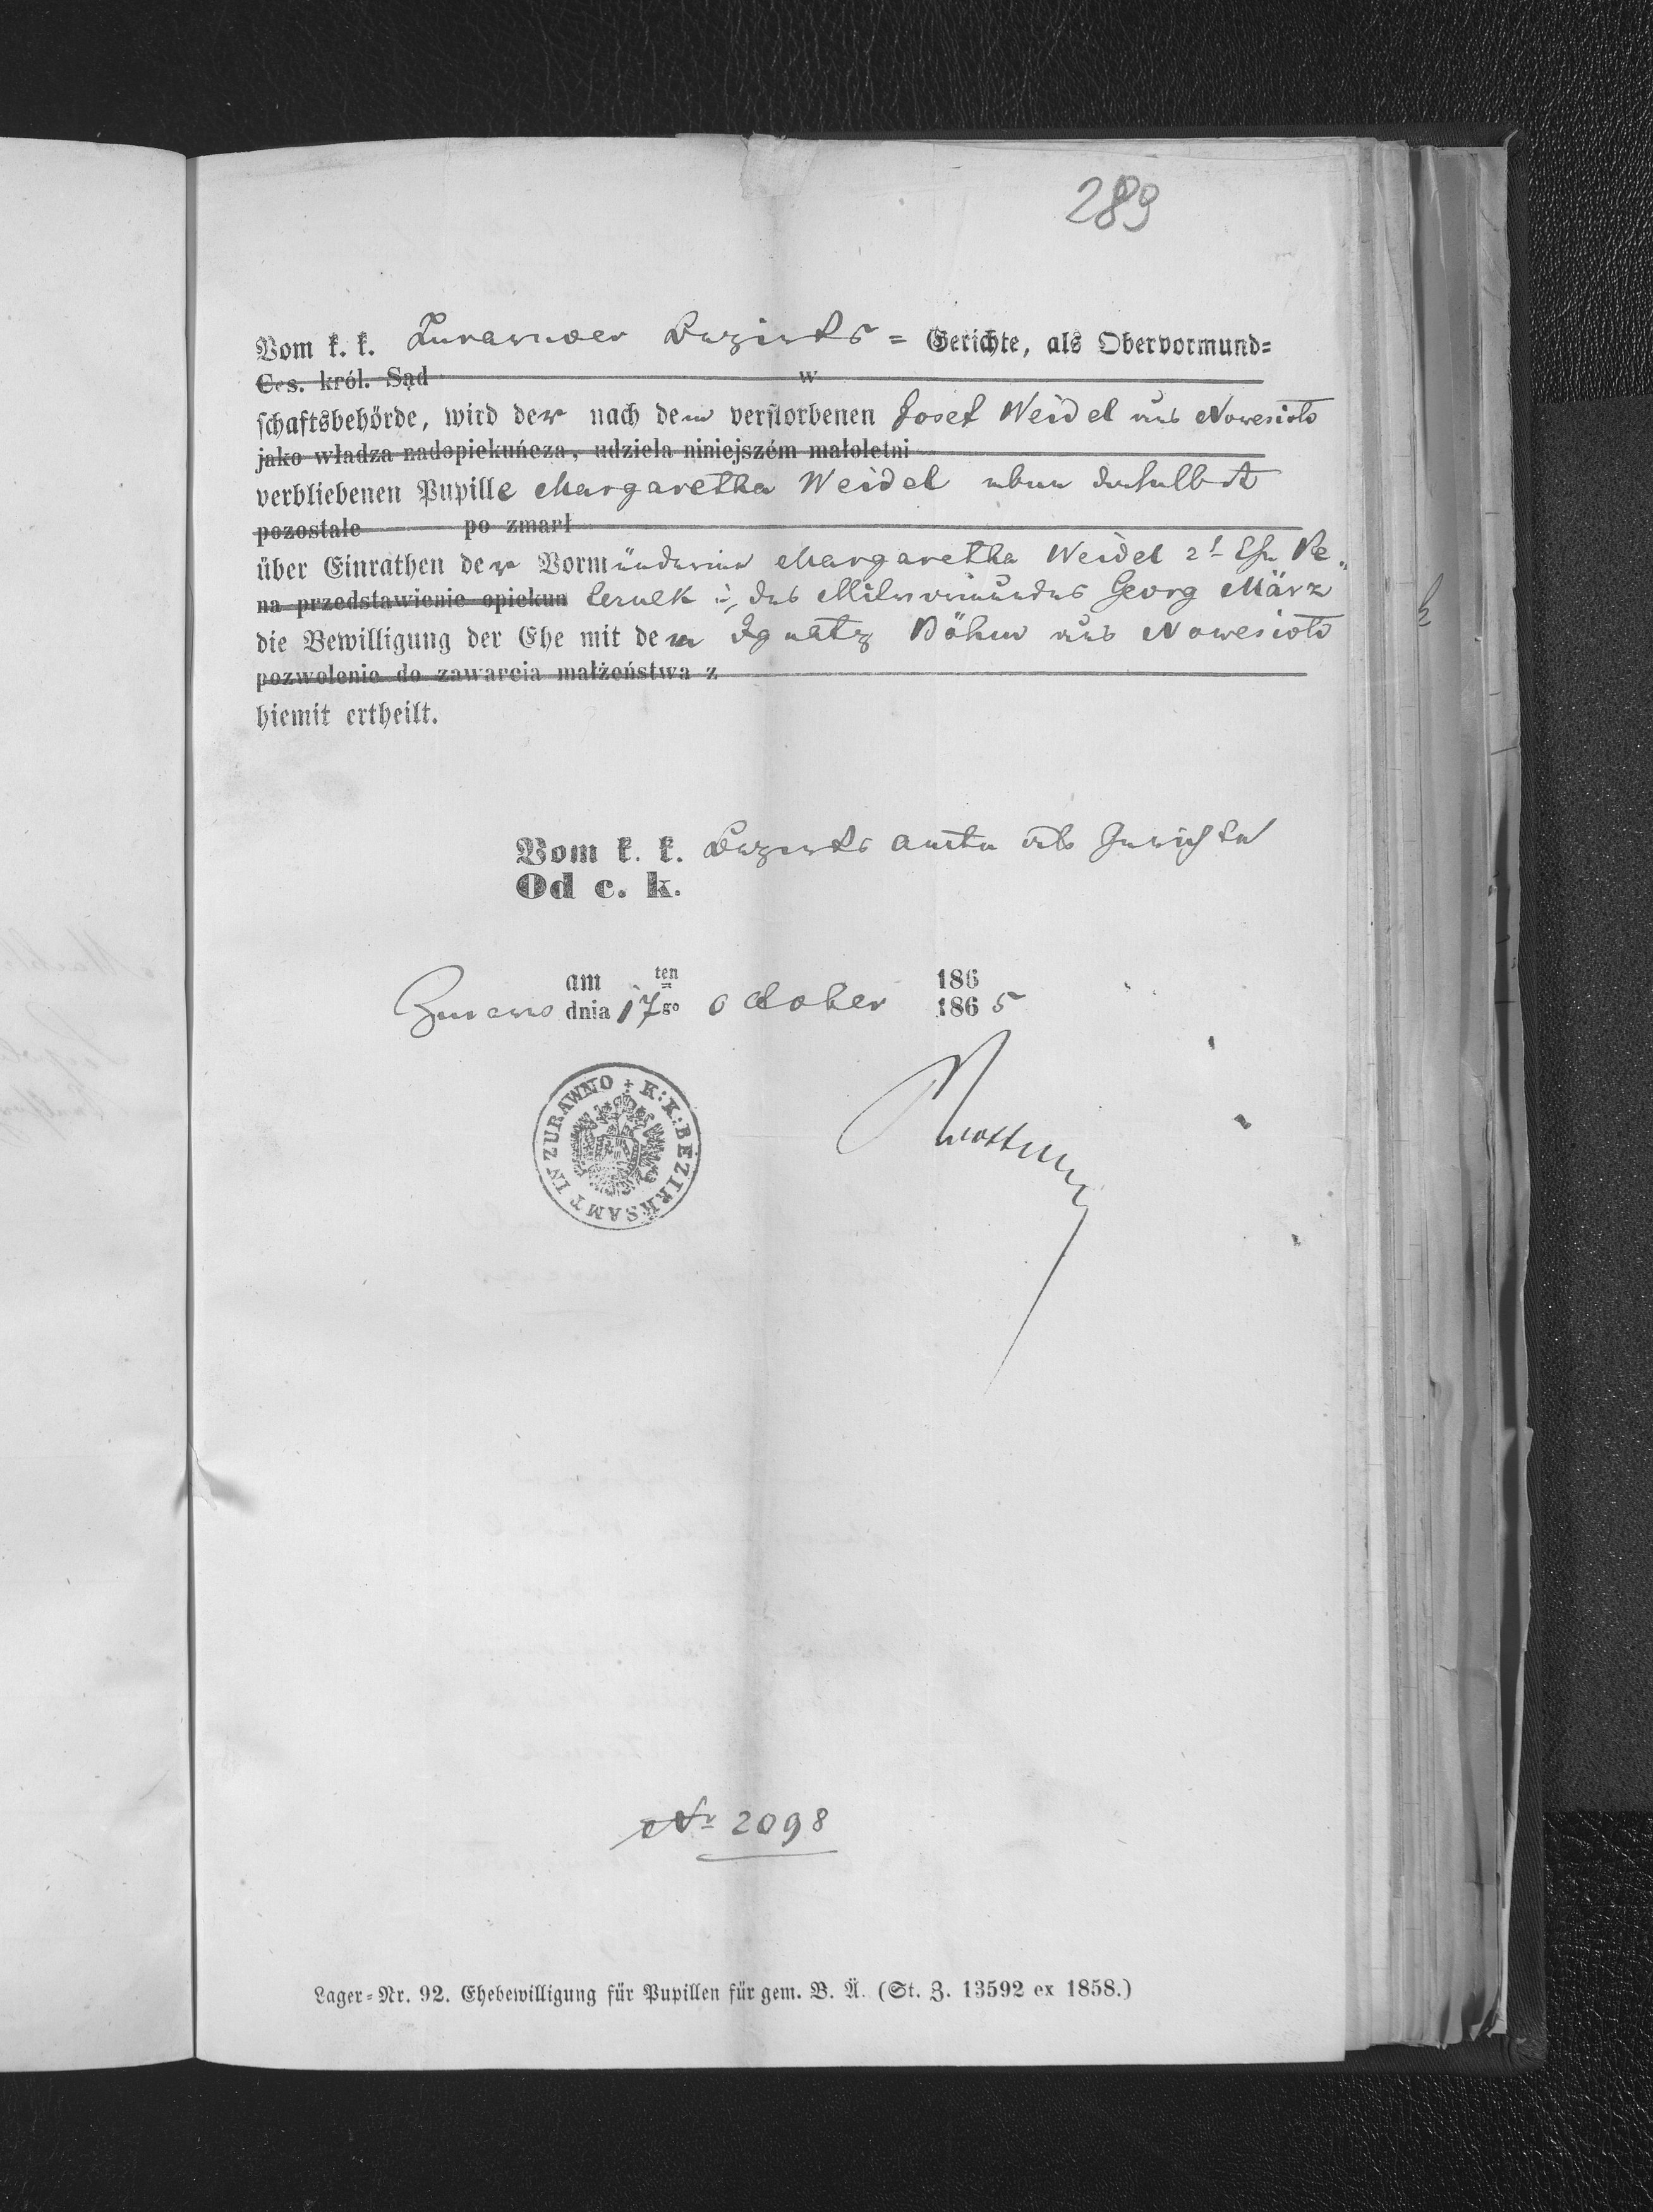 289
Vom k. k. Zurawnoer Bezirks = Gerichte, als Obervormund=
Ces. król. Sąd w
schaftsbehörde, wird der nach dem verstorbenen Josef Weidel aus Nowesioło
jako władza nadopiekuńcza, udziela niniejszém małoletni
verbliebenen Pupille Margaretha Weidel eben daselbst
pozostałe po zmarł
über Einrathen der Vormünderinn Margaretha Weidel 2t Ehe
na przedstawienie opiekun des Mitvormundes Georg März
die Bewilligung der Ehe mit dem Ignatz Böhm aus Nowesioło
pozwolenie do zawarcia małżeństwa z
hiemit ertheilt.
Vom k. k. Bezirks amte als Gerichte
Od c. k.
am ten 186
Zurawno dnia 17 go October 1865
K: K: BEZIRKSAMT IN ZURAWNO
Nr 2098
Lager=Nr. 92. Ehebewilligung für Pupillen für gem. B. Ä. (St. Z. 13592 ex 1858.)